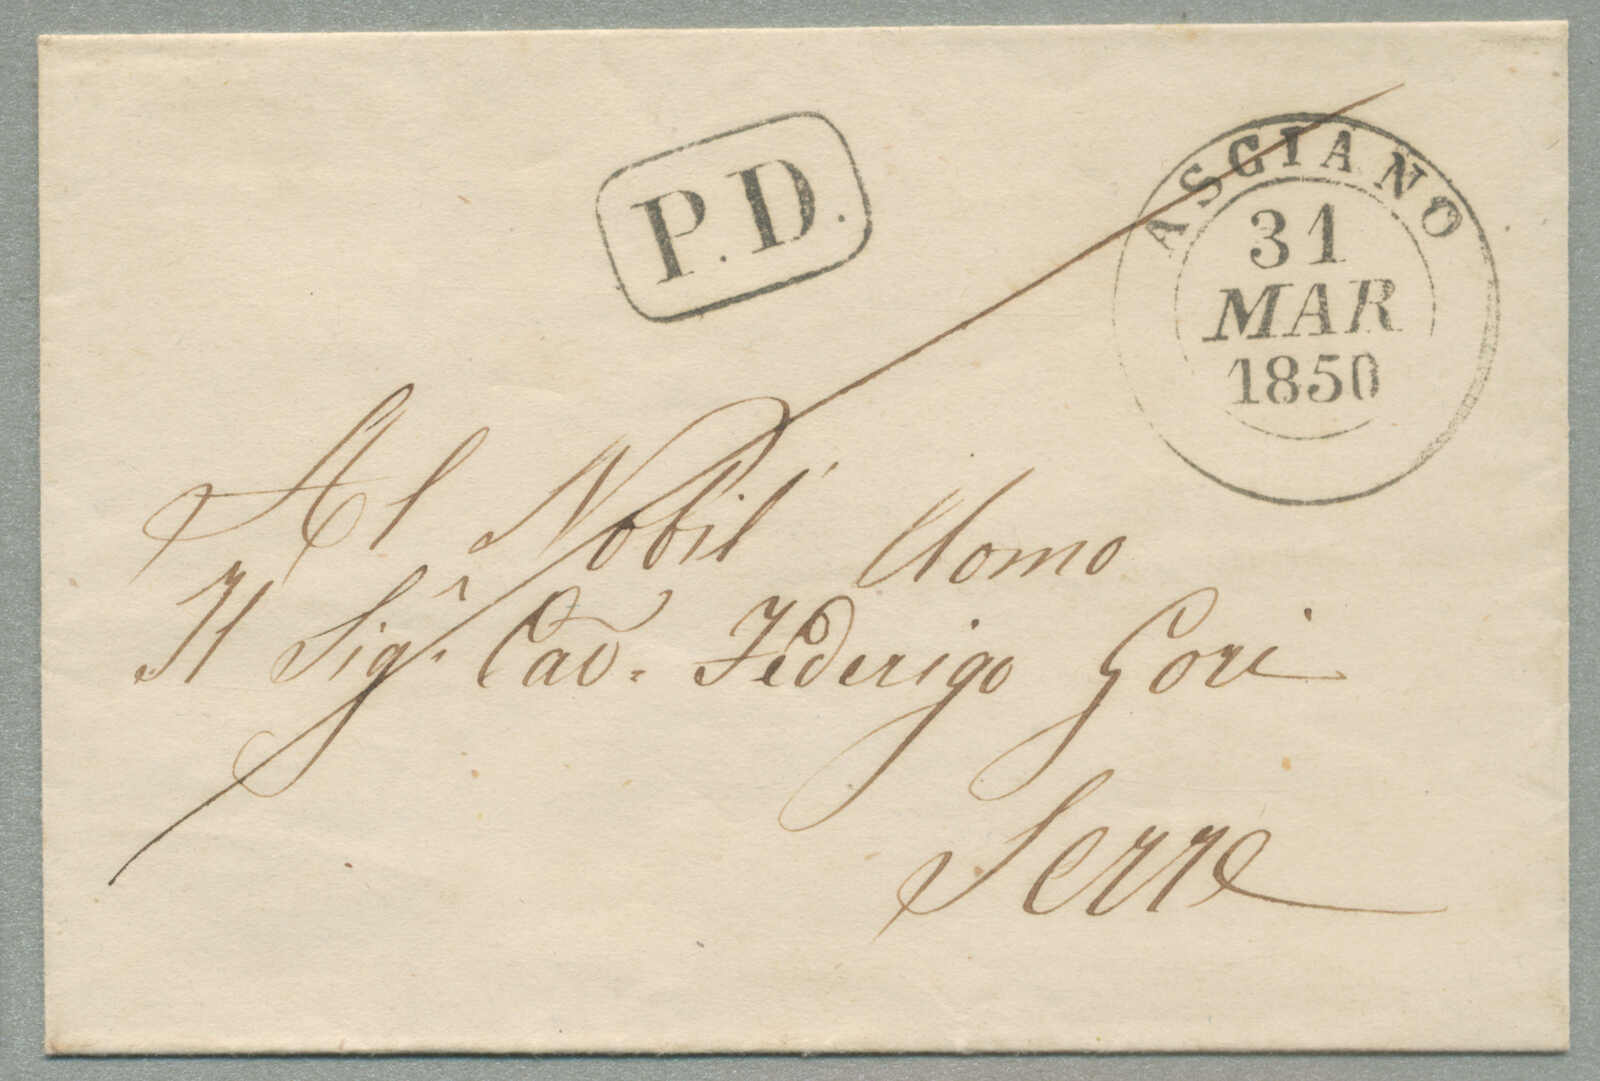 P.D.
ASCIANO
31
MAR
1850
Al Nobil' Uomo
Il Sigr. Cav. Federigo Gori
Serre